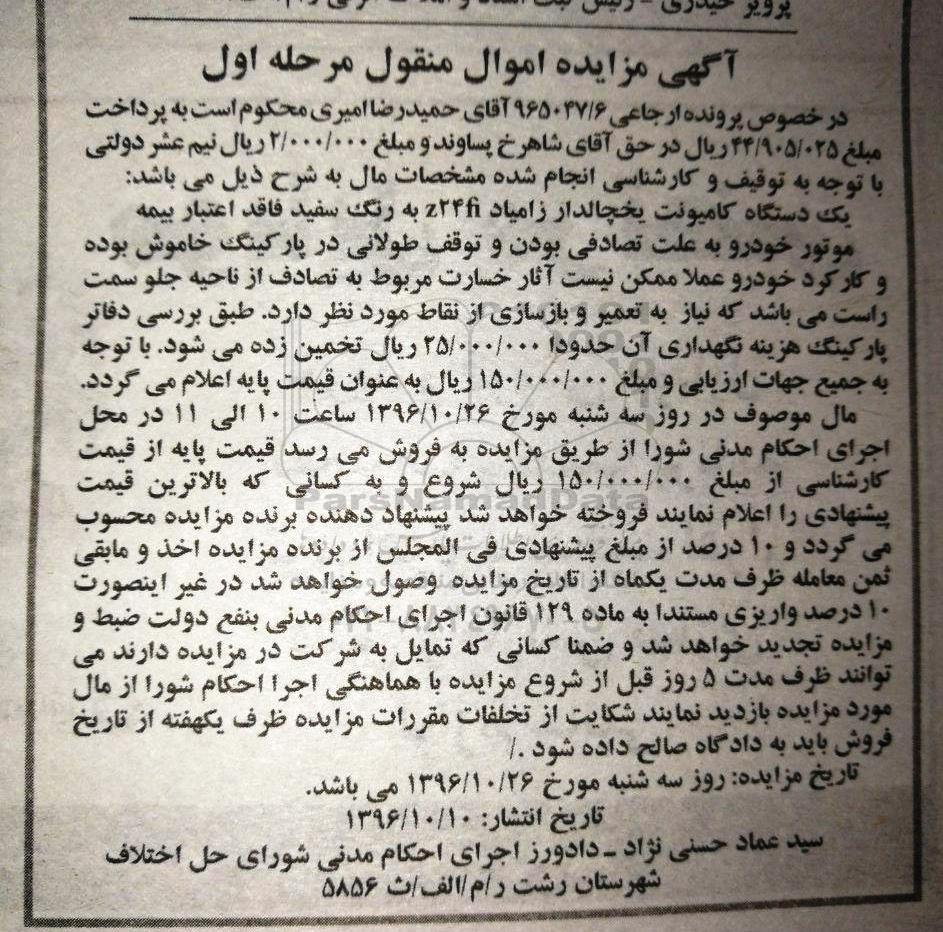 پرویز حیدری - رئیس ثبت اسناد و املاک
آگهی مزایده اموال منقول مرحله اول
در خصوص پرونده ارجاعی ۹۶۵۰۴۷/۶ آقای حمیدرضا امیری محکوم است به پرداخت
مبلغ ۴۴/۹۰۵/۰۲۵ ریال در حق آقای شاهرخ پساوند و مبلغ ۲/۰۰۰/۰۰۰ ریال نیم عشر دولتی
با توجه به توقیف و کارشناسی انجام شده مشخصات مال به شرح ذیل می باشد:
یک دستگاه کامیونت یخچالدار زامیاد z۲۴fi به رنگ سفید فاقد اعتبار بیمه
موتور خودرو به علت تصادفی بودن و توقف طولانی در پارکینگ خاموش بوده
و کارکرد خودرو عملا ممکن نیست آثار خسارت مربوط به تصادف از ناحیه جلو سمت
راست می باشد که نیاز به تعمیر و بازسازی از نقاط مورد نظر دارد. طبق بررسی دفاتر
پارکینگ هزینه نگهداری آن حدودا ۲۵/۰۰۰/۰۰۰ ریال تخمین زده می شود. با توجه
به جمیع جهات ارزیابی و مبلغ ۱۵۰/۰۰۰/۰۰۰ ریال به عنوان قیمت پایه اعلام می گردد.
مال موصوف در روز سه شنبه مورخ ۱۳۹۶/۱۰/۲۶ ساعت ۱۰ الی ۱۱ در محل
اجرای احکام مدنی شورا از طریق مزایده به فروش می رسد قیمت پایه از قیمت
کارشناسی از مبلغ ۱۵۰/۰۰۰/۰۰۰ ریال شروع و به کسانی که بالاترین قیمت
پیشنهادی را اعلام نمایند فروخته خواهد شد پیشنهاد دهنده برنده مزایده محسوب
می گردد و ۱۰ درصد از مبلغ پیشنهادی فی المجلس از برنده مزایده اخذ و مابقی
ثمن معامله ظرف مدت یکماه از تاریخ مزایده وصول خواهد شد در غیر اینصورت
۱۰ درصد واریزی مستندا به ماده ۱۲۹ قانون اجرای احکام مدنی بنفع دولت ضبط و
مزایده تجدید خواهد شد و ضمنا کسانی که تمایل به شرکت در مزایده دارند می
توانند ظرف مدت ۵ روز قبل از شروع مزایده با هماهنگی اجرا احکام شورا از مال
مورد مزایده بازدید نمایند شکایت از تخلفات مقررات مزایده ظرف یکهفته از تاریخ
فروش باید به دادگاه صالح داده شود ./
تاریخ مزایده: روز سه شنبه مورخ ۱۳۹۶/۱۰/۲۶ می باشد.
تاریخ انتشار: ۱۳۹۶/۱۰/۱۰
سید عماد حسنی نژاد - دادورز اجرای احکام مدنی شورای حل اختلاف
شهرستان رشت ر/م/الف/ث ۵۸۵۶
ParsNamadData